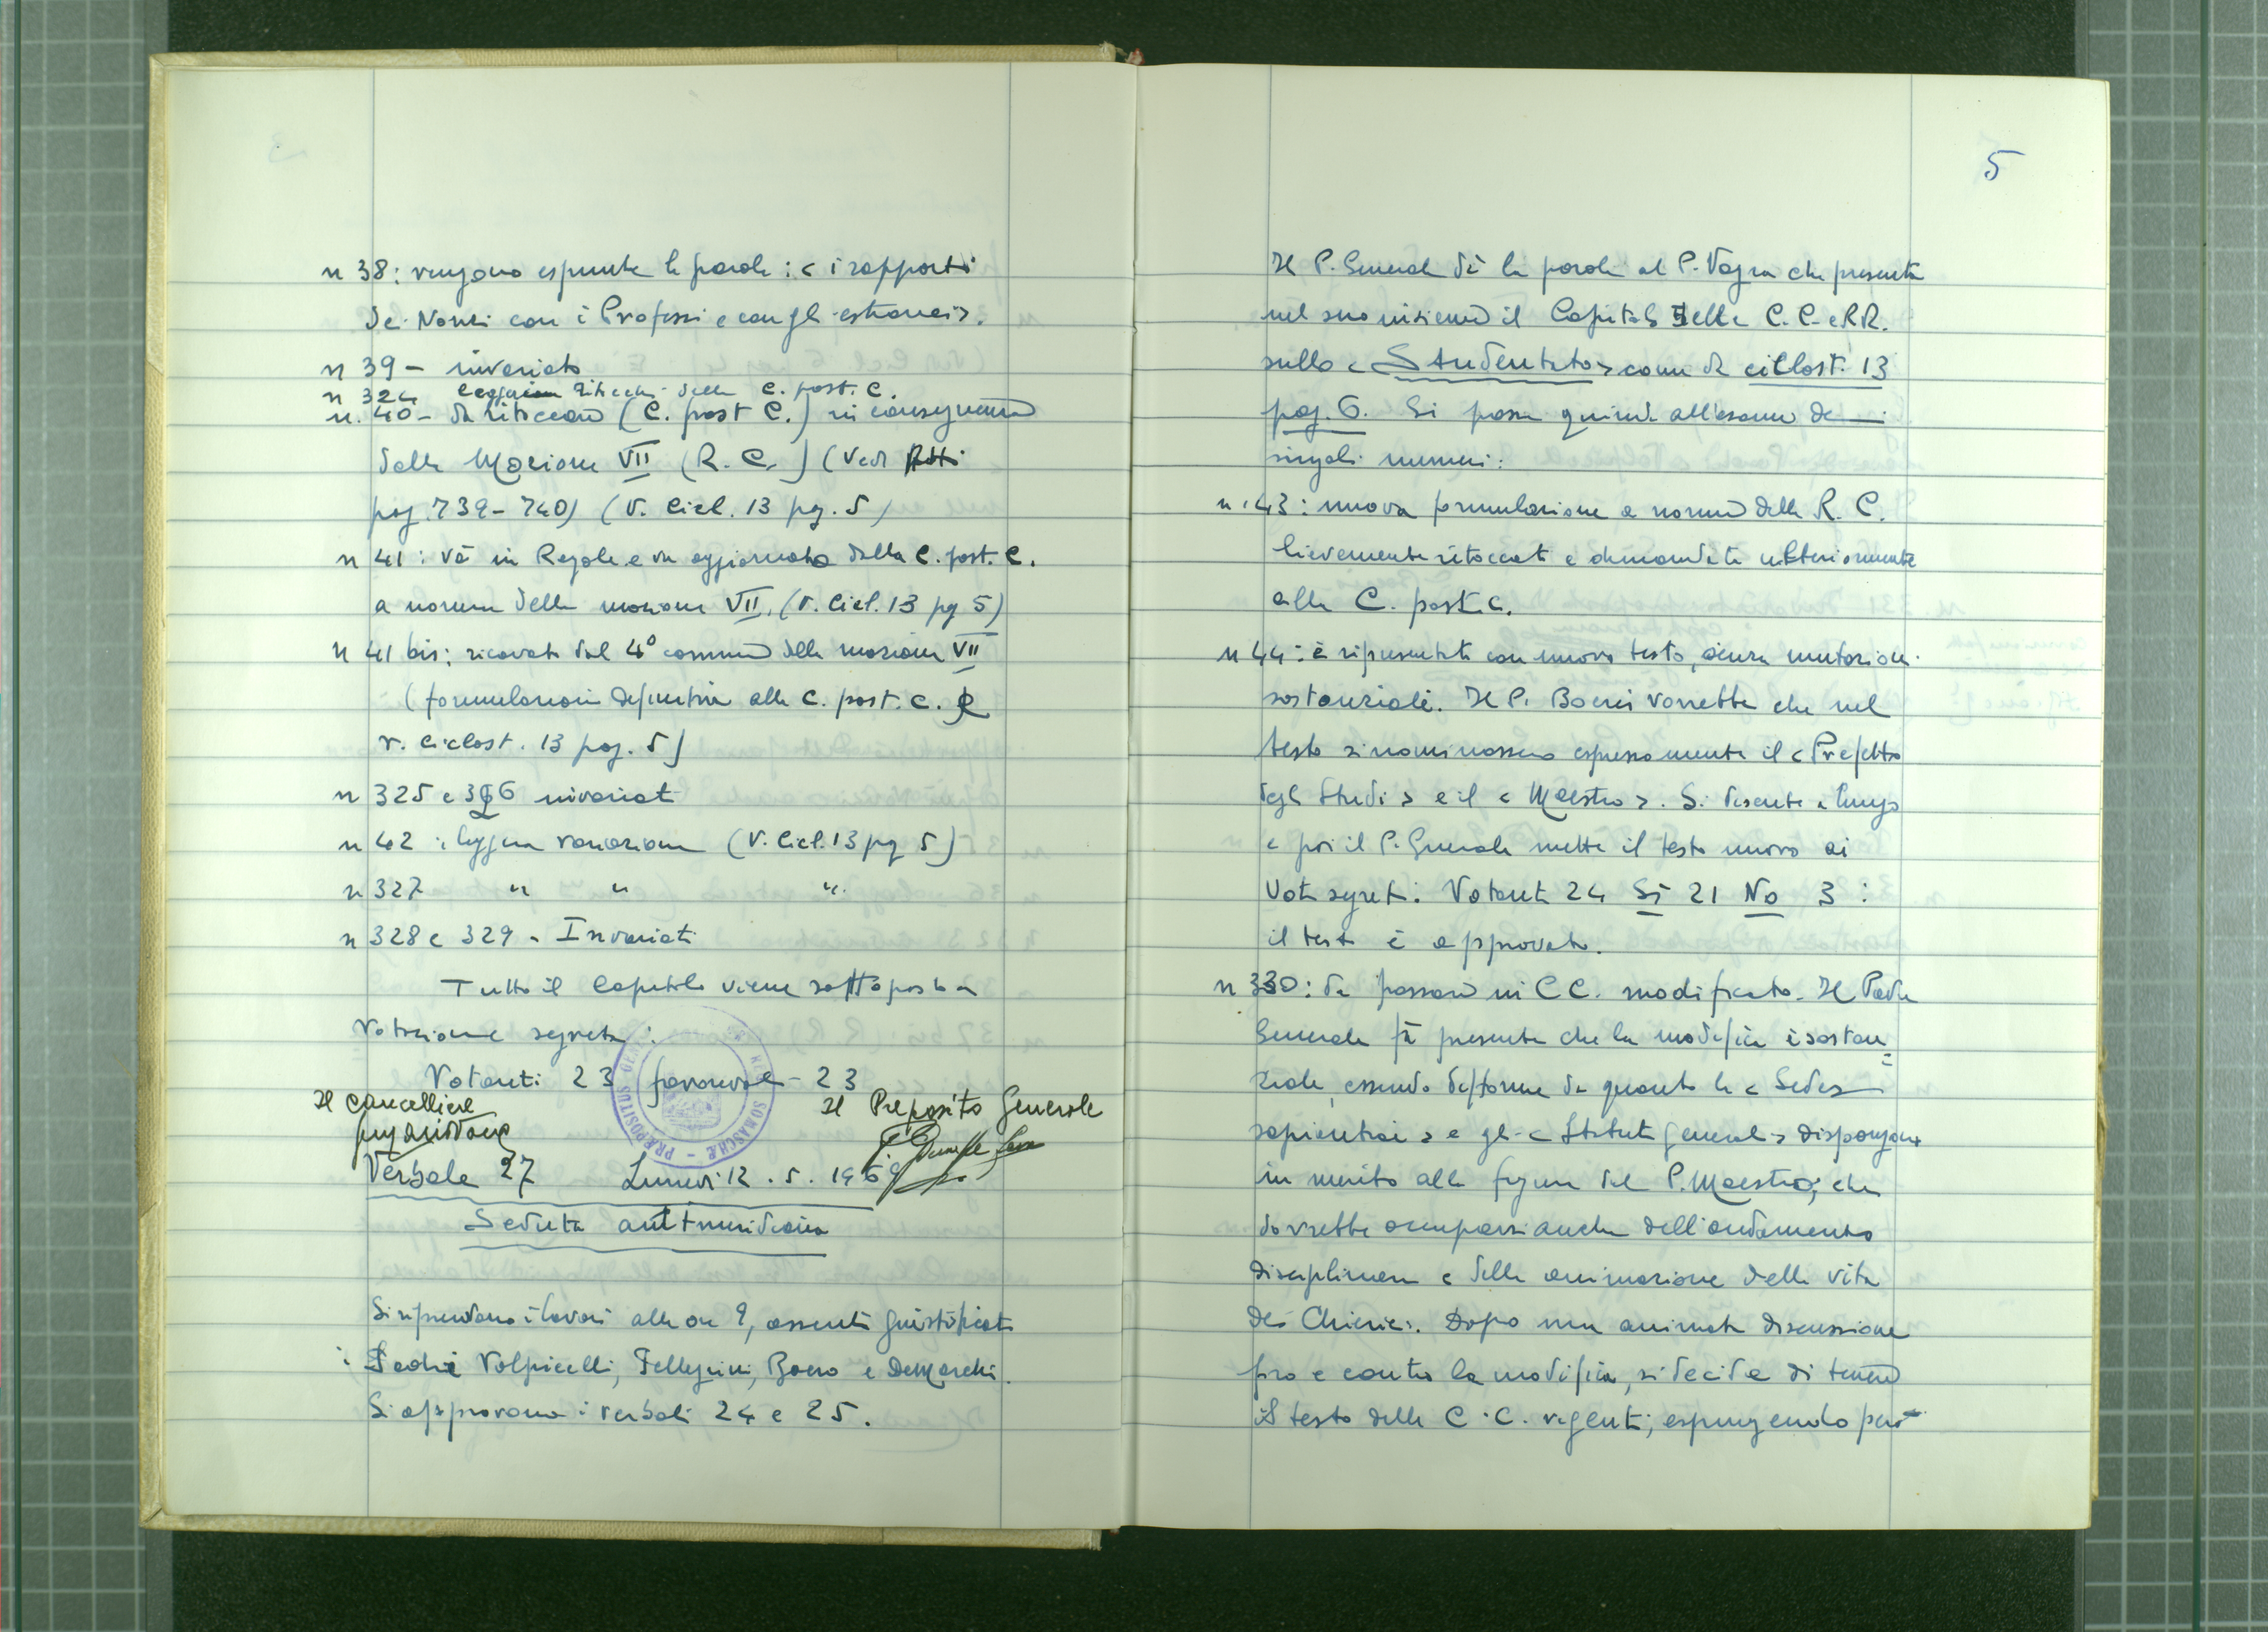 n 38: vengono espunte le parole: < i rapporti
dei Novizi con i Professi e con gli estranei>.
n 39 - invariato
n 324 leggeri ritocchi della C. post. C.
n. 40 - da ritoccare (C. post C.) in conseguenza
della Mozione VII (R. C.) (Vedi Atti
pag. 739-740) (V. Cicl. 13 pg. 5)
n 41: va in Regole e va aggiornato dalla C. post. C.
a norma della mozione VII. (V. Cicl. 13 pg 5)
n 41 bis: ricavato dal 4° comma della mozione VII
(formulazione definitiva alla C. post. C.
v. ciclost. 13 pag. 5)
n 325 e 326 invariati
n 42: leggera variazione (V. Cicl. 13 pg 5)
n 327 " " "
n 328 e 329 - Invariati
Tutto il Capitolo viene sottoposto a
votazione segreta:
Votanti 23 favorevoli - 23
Il Cancelliere
Il Preposito Generale
PRAEPOSITUS GEN. SOMASCHAE
Verbale 27 Lunedì 12. 5. 1969
Seduta antimeridiana
Si riprendono i lavori alle ore 9, assenti giustificati
i Padri Volpicelli, Pellegrini, Boero e DeMarchi.
Si approvano i verbali 24 e 25.
5
Il P. Generale dà la parola al P. Vagra che presenta
nel suo insieme il Capitolo delle C. C. e RR.
sullo < Studentato > come da ciclost. 13
pag. 6. Si passa quindi all'esame dei
singoli numeri:
n. 43: nuova formulazione a norma della R. C.
lievemente ritoccata e demandata ulteriormente
alla C. post. C.
n 44: è ripresentato con nuovo testo, senza mutazioni
sostanziali. Il P. Boeris vorrebbe che nel
testo si nominassero espressamente il < Prefetto
degli Studi > e il < Maestro >. Si discute a lungo
e poi il P. Generale mette il testo nuovo ai
voti segreti: Votanti 24 Sì 21 No 3:
il testo è approvato.
n 330: da passare in CC. modificato. Il Padre
Generale fa presente che la modifica è sostan=
ziale, essendo difforme da quanto la < Sedes
sapientiae > e gli < Statuti generali > dispongono
in merito alla figura del P. Maestro; che
dovrebbe occuparsi anche dell'andamento
disciplinare e della animazione della vita
dei Chierici. Dopo una animata discussione
pro e contro la modifica, si decide di tenere
il testo delle C. C. vigenti, espungendo però